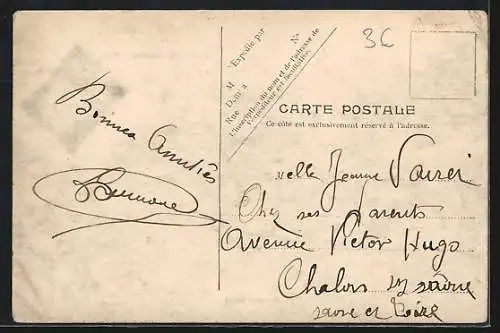 Bonnes Amitiés
3€
Expédié par
N°
M
Dom à
Rue
L'inscription du nom et de l'adresse de
l'expéditeur est facultative.
CARTE POSTALE
Ce côté est exclusivement réservé à l'adresse.
Melle Jeanne
Chez ses Parents
Avenue Victor Hugo
Chalon s/ saône
saone et Loire